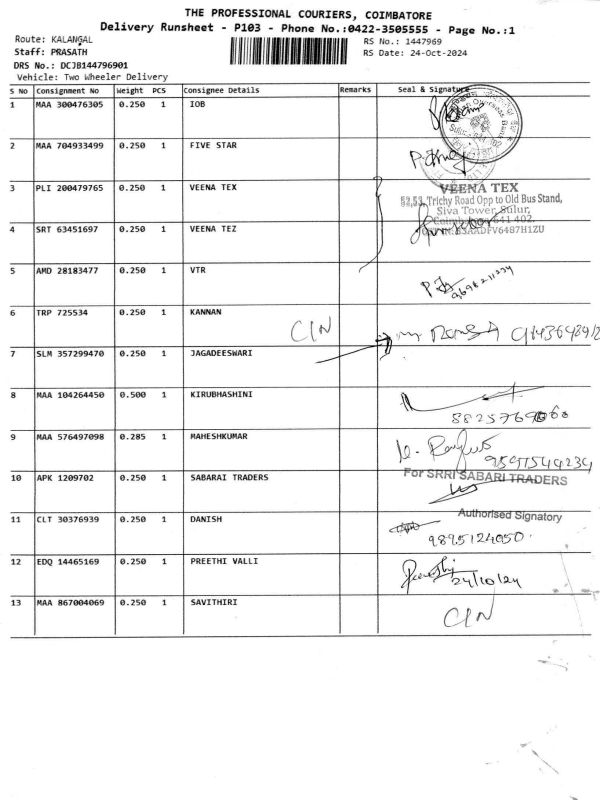 THE PROFESSIONAL COURIERS, COIMBATORE
Delivery Runsheet - P103 - Phone No.:0422-3505555 - Page No.:1
Route: KALANGAL
RS No.: 1447969
Staff: PRASATH
RS Date: 24-Oct-2024
DRS No.: DCJB144796901
Vehicle: Two Wheeler Delivery
S No Consignment No Weight PCS Consignee Details Remarks Seal & Signature
1 MAA 300476305 0.250 1 IOB
2 MAA 704933499 0.250 1 FIVE STAR
3 PLI 200479765 0.250 1 VEENA TEX
VEENA TEX
52,53, Trichy Road Opp to Old Bus Stand,
Siva Tower, Sulur,
4 SRT 63451697 0.250 1 VEENA TEZ
5 AMD 28183477 0.250 1 VTR
6 TRP 725534 0.250 1 KANNAN
CIN
7 SLM 357299470 0.250 1 JAGADEESWARI
8 MAA 104264450 0.500 1 KIRUBHASHINI
9 MAA 576497098 0.285 1 MAHESHKUMAR
9597544234
For SRRI SABARI TRADERS
10 APK 1209702 0.250 1 SABARAI TRADERS
Authorised Signatory
11 CLT 30376939 0.250 1 DANISH
9895124050
12 EDQ 14465169 0.250 1 PREETHI VALLI
24/10/24
13 MAA 867004069 0.250 1 SAVITHIRI
CIN